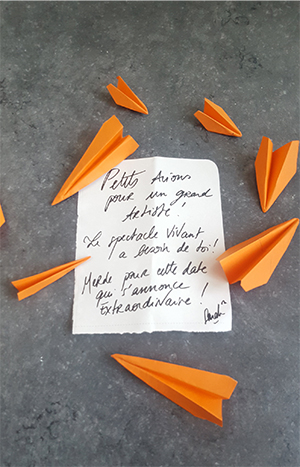 Petits Avions
pour un grand
Artiste !
Le spectacle Vivant
a besoin de toi !
Merde pour cette date
qui s'annonce
Extraordinaire !